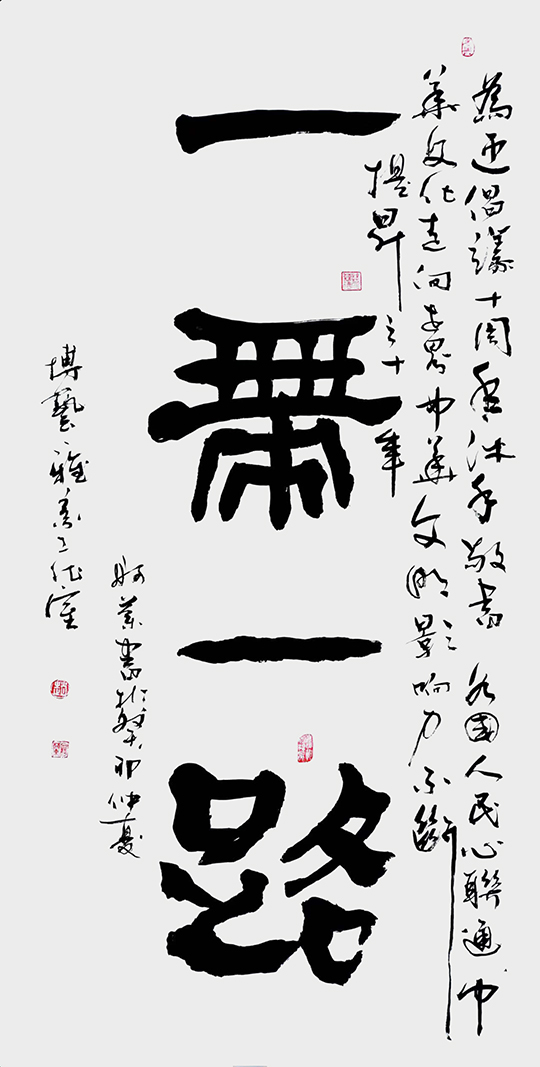 為迎倡議十周年沐手敬書 各國人民心聯通中
華文化走向世界中華文明影响力不斷
提昇之十年
一帶一路
書於癸卯仲夏
博藝雅齋工作室